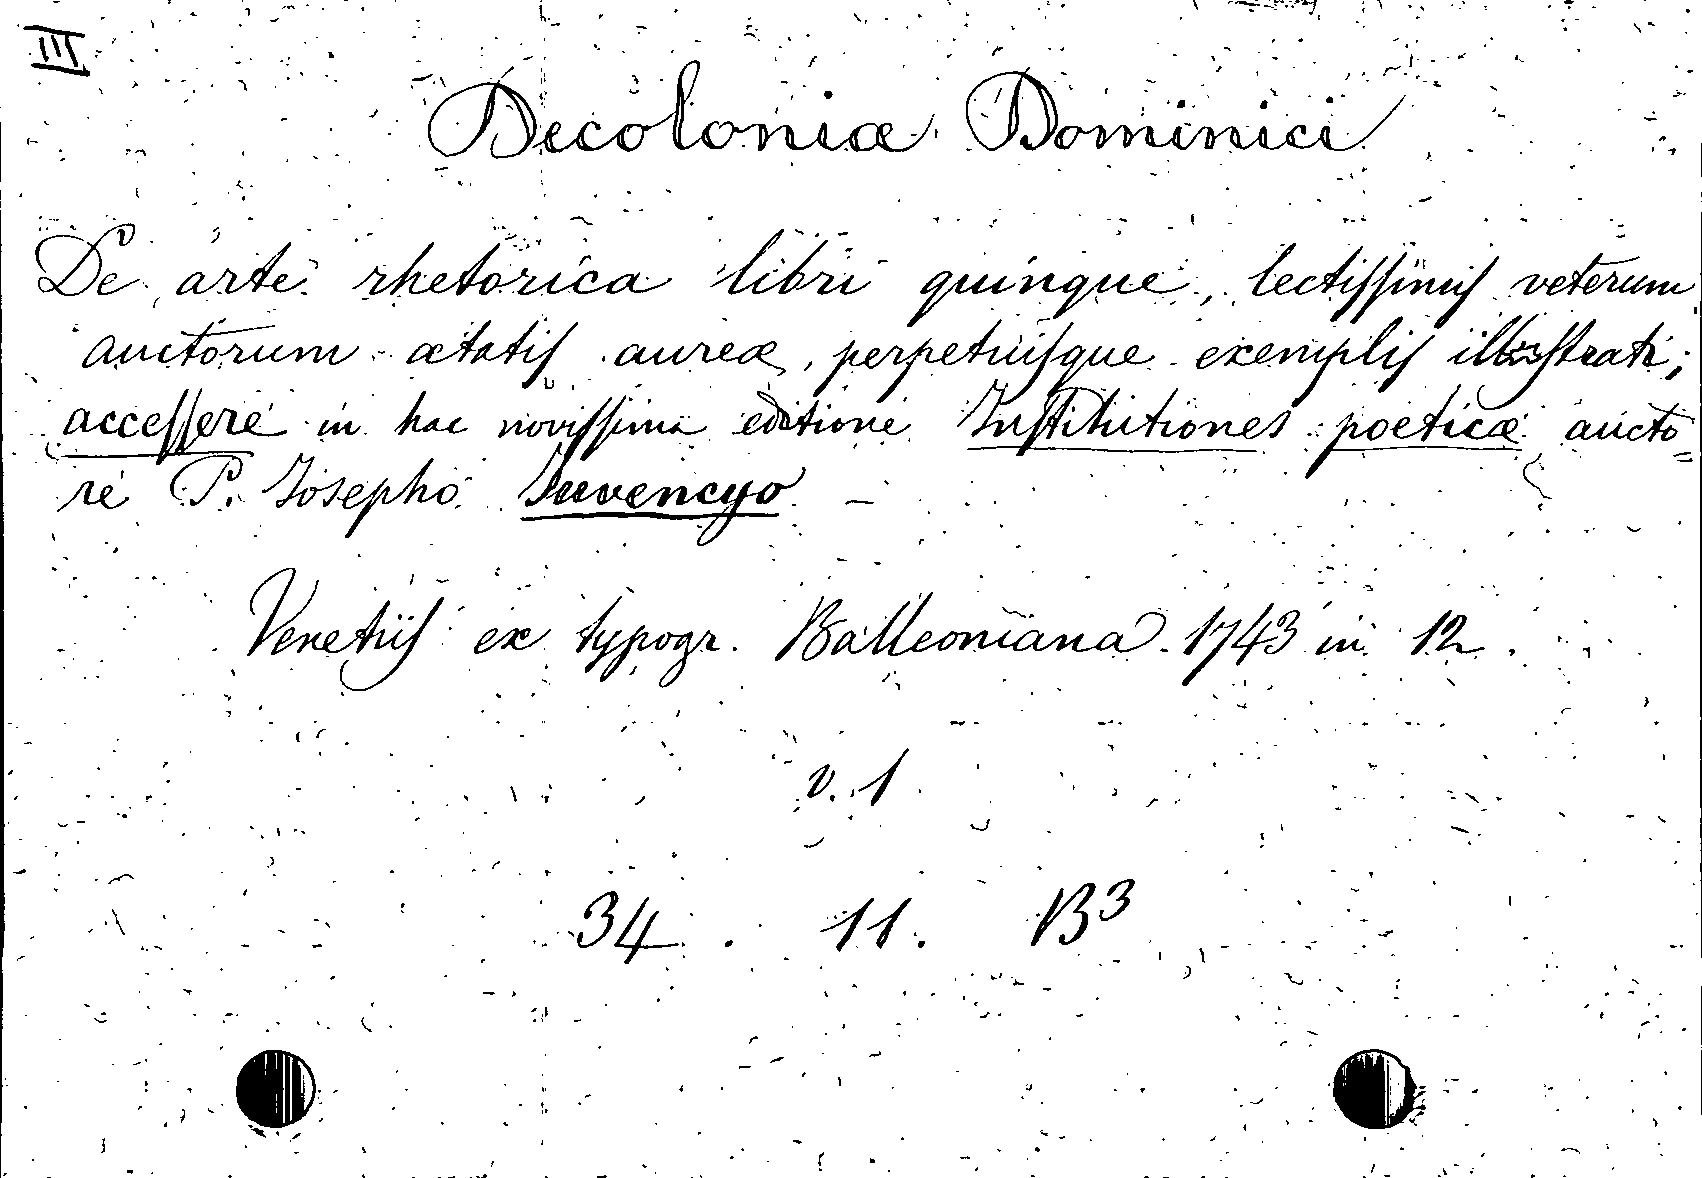 III
Decoloniæ Dominici
De arte rhetorica libri quinque, lectiſſimiſ veterum
auctorum ætatiſ aureæ, perpetuiſque exempliſ illuſtrati;
acceſſere in hac noviſſima editione Institutiones poeticæ aucto=
re P. Iosepho Iuvencyo –
Venetiiſ ex typogr. Balleoniana 1743 in 12.
v. 1
34. 11. B3